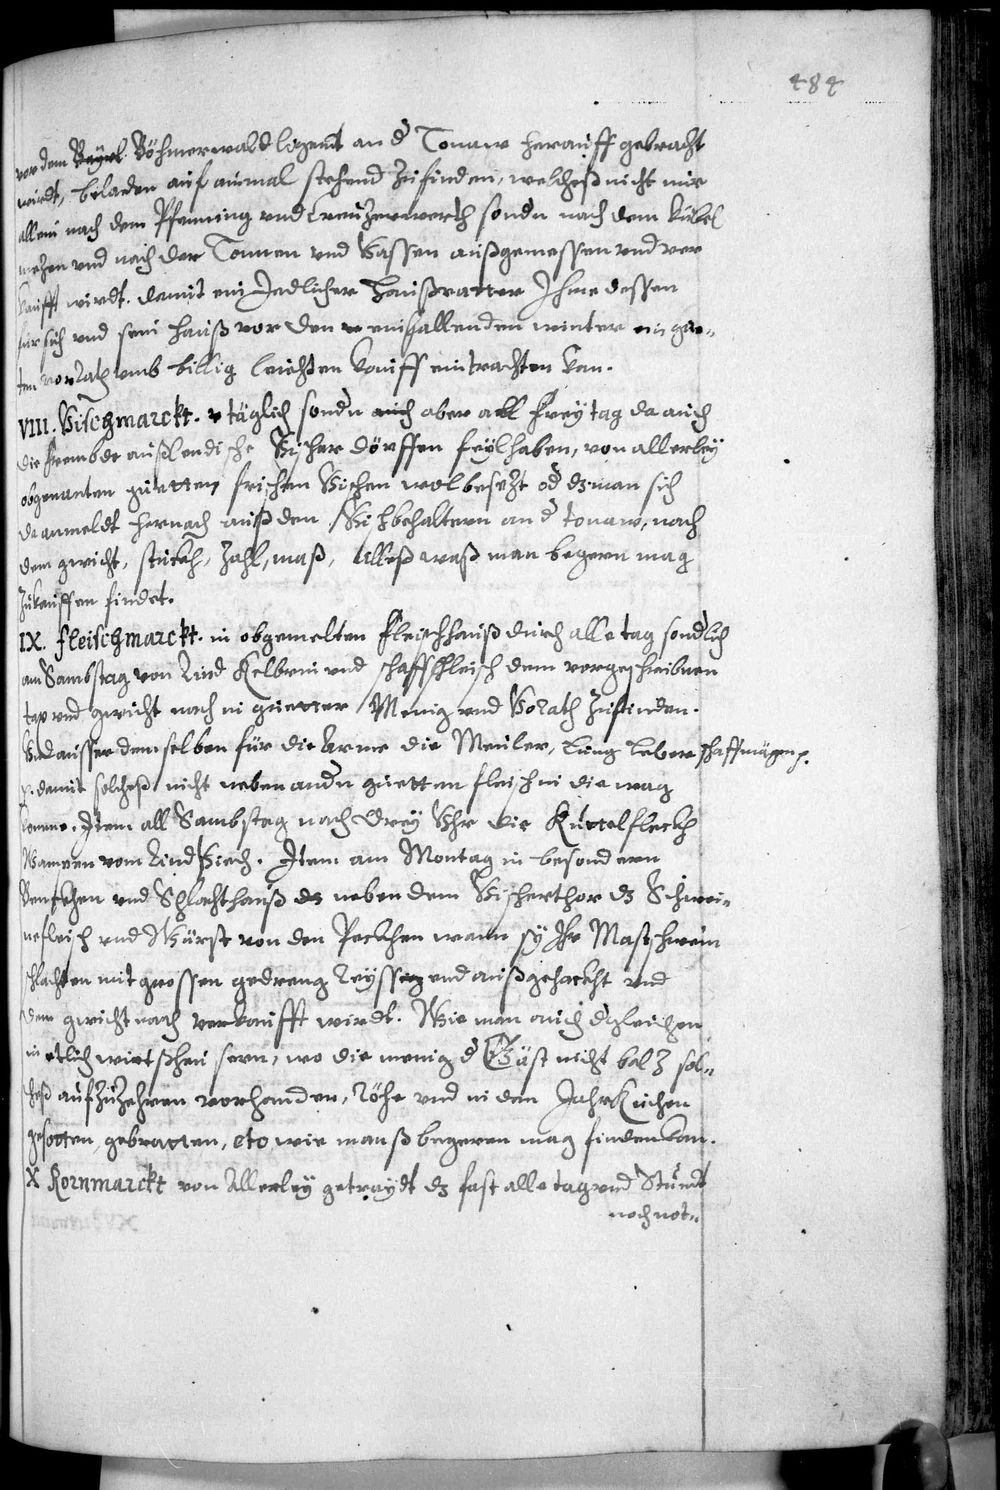 484
vor dem Bayrl. Böhmerwald ligent an d Tonaw herauff gebracht
wirdt, beladen auf ainmal stehend zufinden, welcheß nicht nur
allein nach dem Pfenning vnd Creuzerwerth sondn nach dem Kübel
mezen vnd nach der Tonnen vnd Vassen außgemessen vnd ver
kaufft wirdt. damit ein Jedlicher Haußvatter Ihme dessen
für sich vnd sein hauß vor den einfallenden winter ein gue-
ten vorrath vmb billig leichten kauff eintrachten kan.
VIII. Vischmarckt. täglich sondn auch aber all Freytag da auch
die frembde außlendische Vischer dörffen feylhaben, von allerley
obgenanten guetten frischen Vischen wol besezt od dz man sich
da anmeldt hernach auß den Vischbehaltern an d tonaw, nach
dem gwicht, stuckh, zahl, maß, Alleß waß man begern mag
zukauffen findet.
IX. fleischmarckt. in obgemelten Fleischhauß durch alle tag sondlich
am Sambstag von Rind Kelbern vnd schaffFleisch dem vorgeschribnen
tax vnd gwicht nach in guetter Menig vnd Vorath zufinden.
Vnd ausser demselben für die Arme die Meuler, Lung Leber schaffmägen
damit solcheß nicht neben andn guetten fleisch in die wag
komme. Item all Sambstag nach Drey Vhr die Kuttelfleckh
Wampen vom Rind Viech. Item am Montag in besondern
Benckhen vnd Schlachthauß dz neben dem Vischerthor dz Schwei-
nefleisch vnd Würst von den Peckhen wann sy Ihr Mastschwein
schlachten mit grossen gedreng vnd außgehackht vnd
dem gwicht nach verkaufft wirdt. Wie man auch dgleichen
in etlich wirtßheusern, wo die menig d Gäst nicht bald sol-
cheß aufzuzehren vorhanden, Röhe vnd in den Kuchen
gesotten, gebratten, etc, wie manß begeren mag finden kan.
X Kornmarckt von Allerley getraydt dz fast alle tag vnd Stundt
nach not-